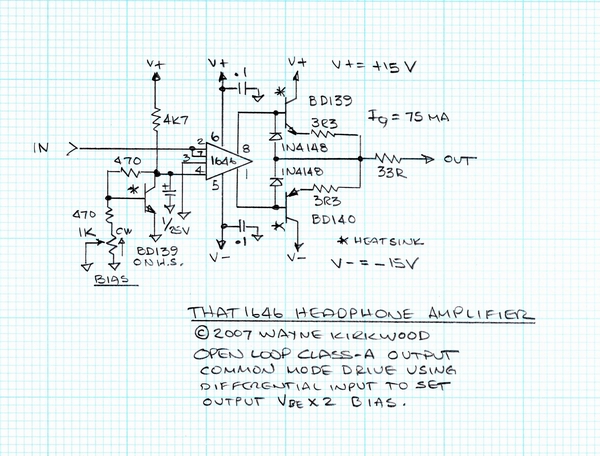 V+
V+
V+
V+ = +15V
.1
*
BD139
4K7
3R3
IQ = 75 MA
6
IN
2
7
3
4
1646
8
1
1N4148
1N4148
OUT
33R
470
*
+
5
3R3
BD140
470
1/25V
1K
CW
BD139
ON H.S.
.1
*
* HEATSINK
BIAS
V-
V-
V- = -15V
THAT1646 HEADPHONE AMPLIFIER
© 2007 WAYNE KIRKWOOD
OPEN LOOP CLASS-A OUTPUT
COMMON MODE DRIVE USING
DIFFERENTIAL INPUT TO SET
OUTPUT VBE X 2 BIAS.